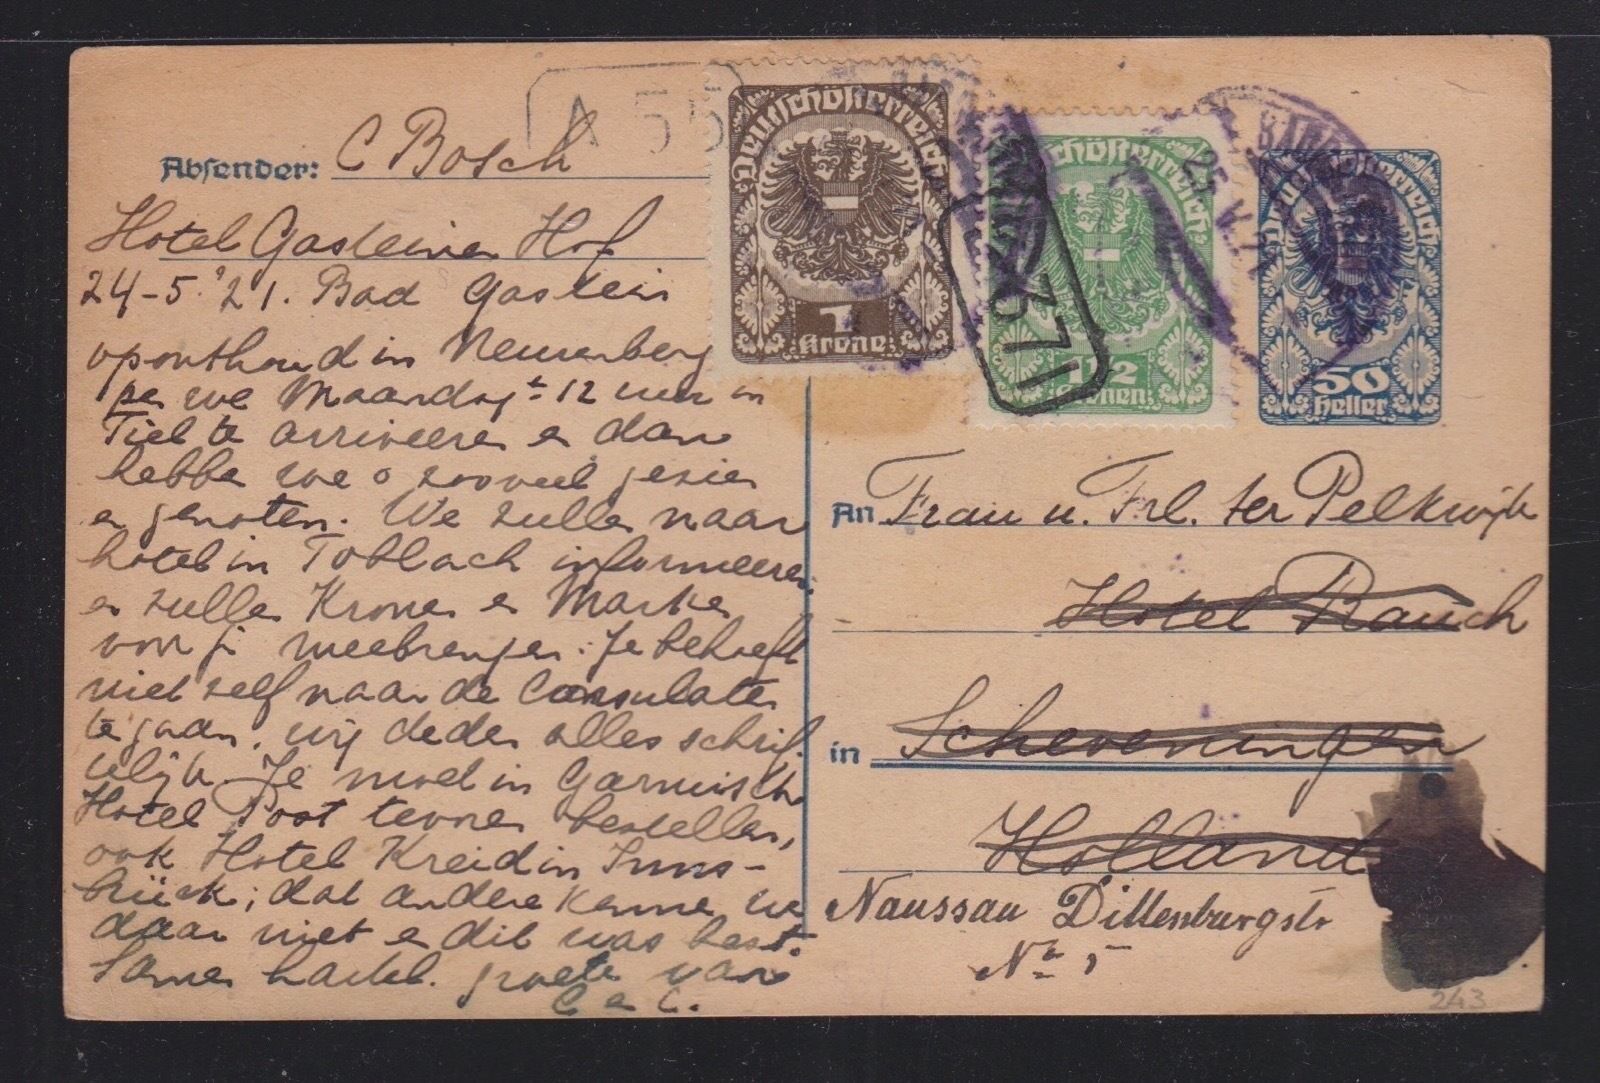 A 55
Absender: C Bosch
Hotel Gasteiner Hof
24-5-'21. Bad Gastein
oponthoud in Neurenberg
we Maandag ± 12 uur in
Tiel te arriveeren en dan
hebben we zooveel gezien
en genoten. We zullen naar
hotel in Toblach informeeren
en zullen Kronen en Marken
voor je meebrengen. Je behoeft
niet zelf naar de Consulaten
te gaan, wij deden alles schrif-
telijk. Je moet in Garmisch
Hotel Post tevoren bestellen,
ook Hotel Kreid in Inns-
brück; dat andere kennen we
daar niet en dit was best.
Samen hartel. groeten van
C en C.
Deutschösterreich
1
Krone
Deutschösterreich
1½
Kronen
1371
25 V. 21
Deutschösterreich
50
Heller
An Frau u. Frl. ter Pelkwijk
Hotel Rauch
in Scheveningen
Holland
Naussau Dillenburgstr
No 5
243